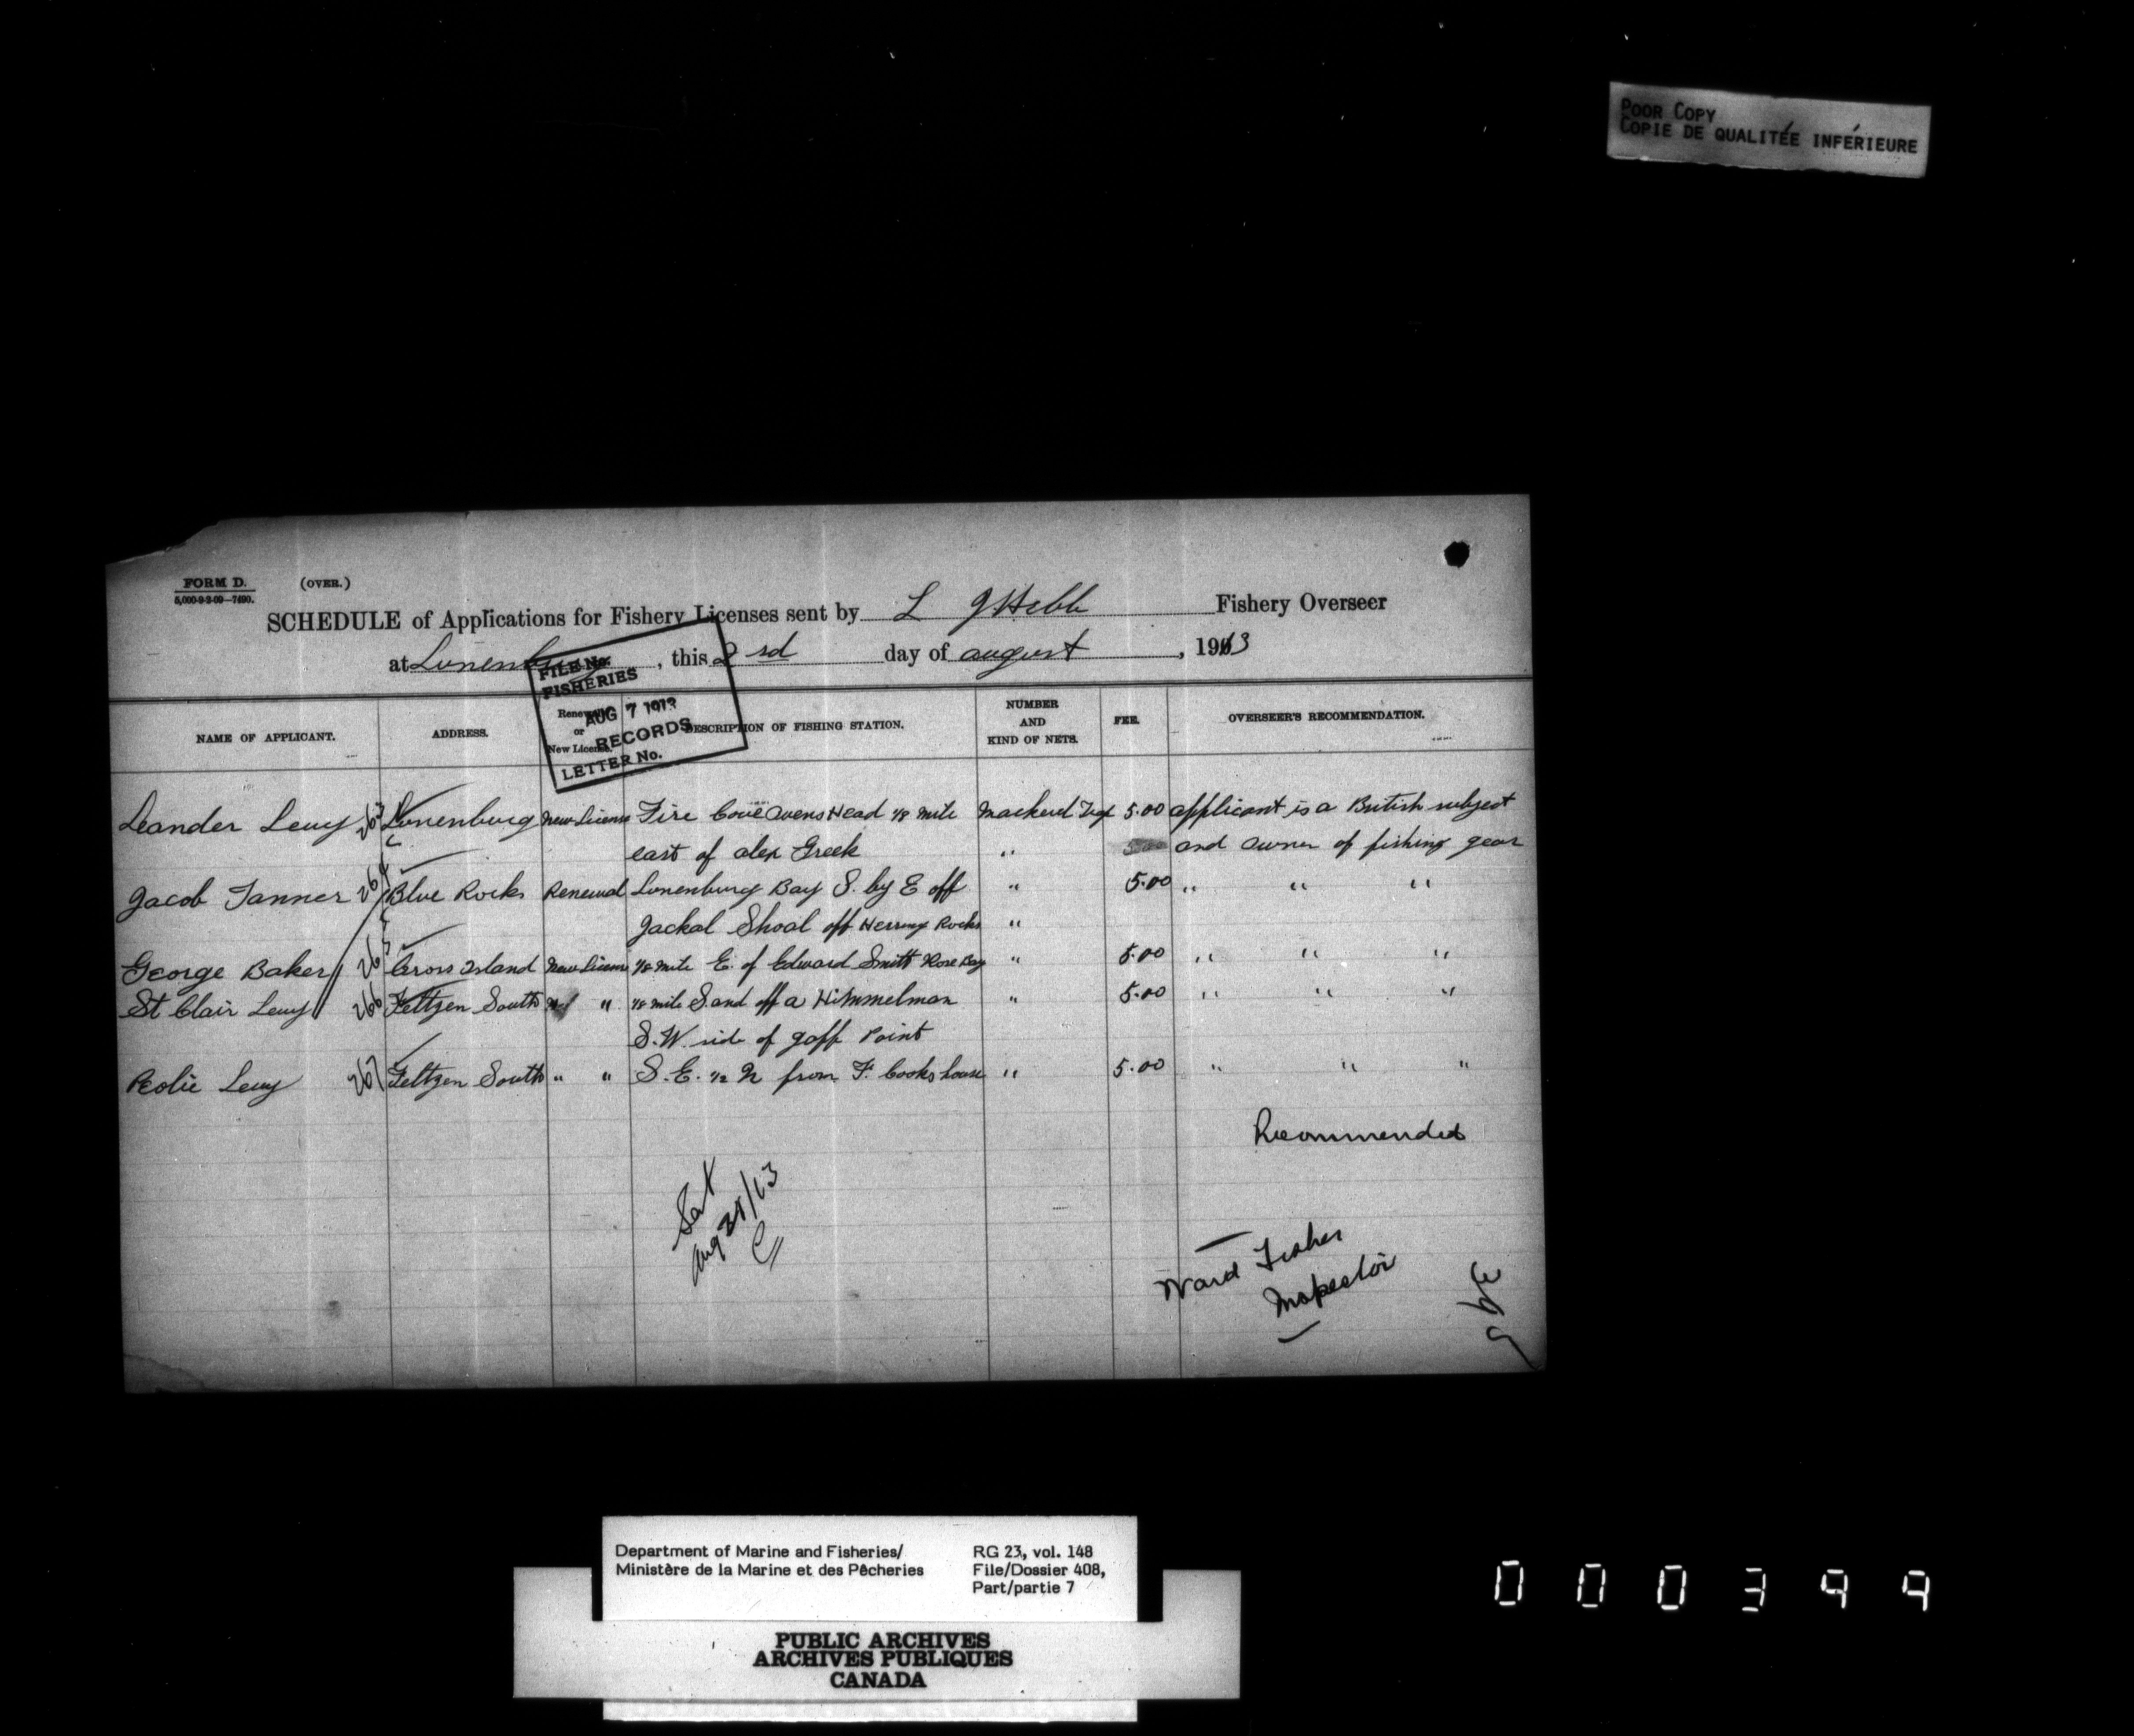 POOR COPY
COPIE DE QUALITÉE INFÉRIEURE
FORM D. (OVER.)
5,000-9-2-09—7490.
SCHEDULE of Applications for Fishery Licenses sent by L Hebb Fishery Overseer
at Lunenburg, this 2 rd day of august, 1913
FILE No.
FISHERIES
AUG 7 1913
RECORDS
LETTER No.
NAME OF APPLICANT. ADDRESS. Renewal or New License. DESCRIPTION OF FISHING STATION. NUMBER AND KIND OF NETS. FEE. OVERSEER'S RECOMMENDATION.
Leander Levy 263 Lunenburg New License Fire Cove Ovens Head 1/8 mile Mackerel Trap 5.00 applicant is a British subject
east of alex Greek " and owner of fishing gear
Jacob Tanner 264 Blue Rocks Renewal Lunenburg Bay S. by E off " 5.00 " " "
Jackal Shoal off Herring Rocks "
George Baker 265 Cross Island New License 1/8 mile E. of Edward Smith Rose Bay " 5.00 " " "
St Clair Levy 266 Feltzen South " 1/8 mile S. and off a Himmelman " 5.00 " " "
S. W. side of gaff Point
Levy 267 Feltzen South " " S. E. 1/2 N from F. Cooks house " 5.00 " " "
Recommended
Aug /13
Ward Fisher
Inspector
Department of Marine and Fisheries/
Ministère de la Marine et des Pêcheries
RG 23, vol. 148
File/Dossier 408,
Part/partie 7
PUBLIC ARCHIVES
ARCHIVES PUBLIQUES
CANADA
000399